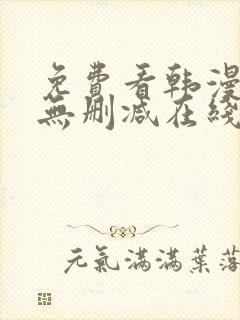 免費看韩漫
無删减在綫
元氣滿滿葉落